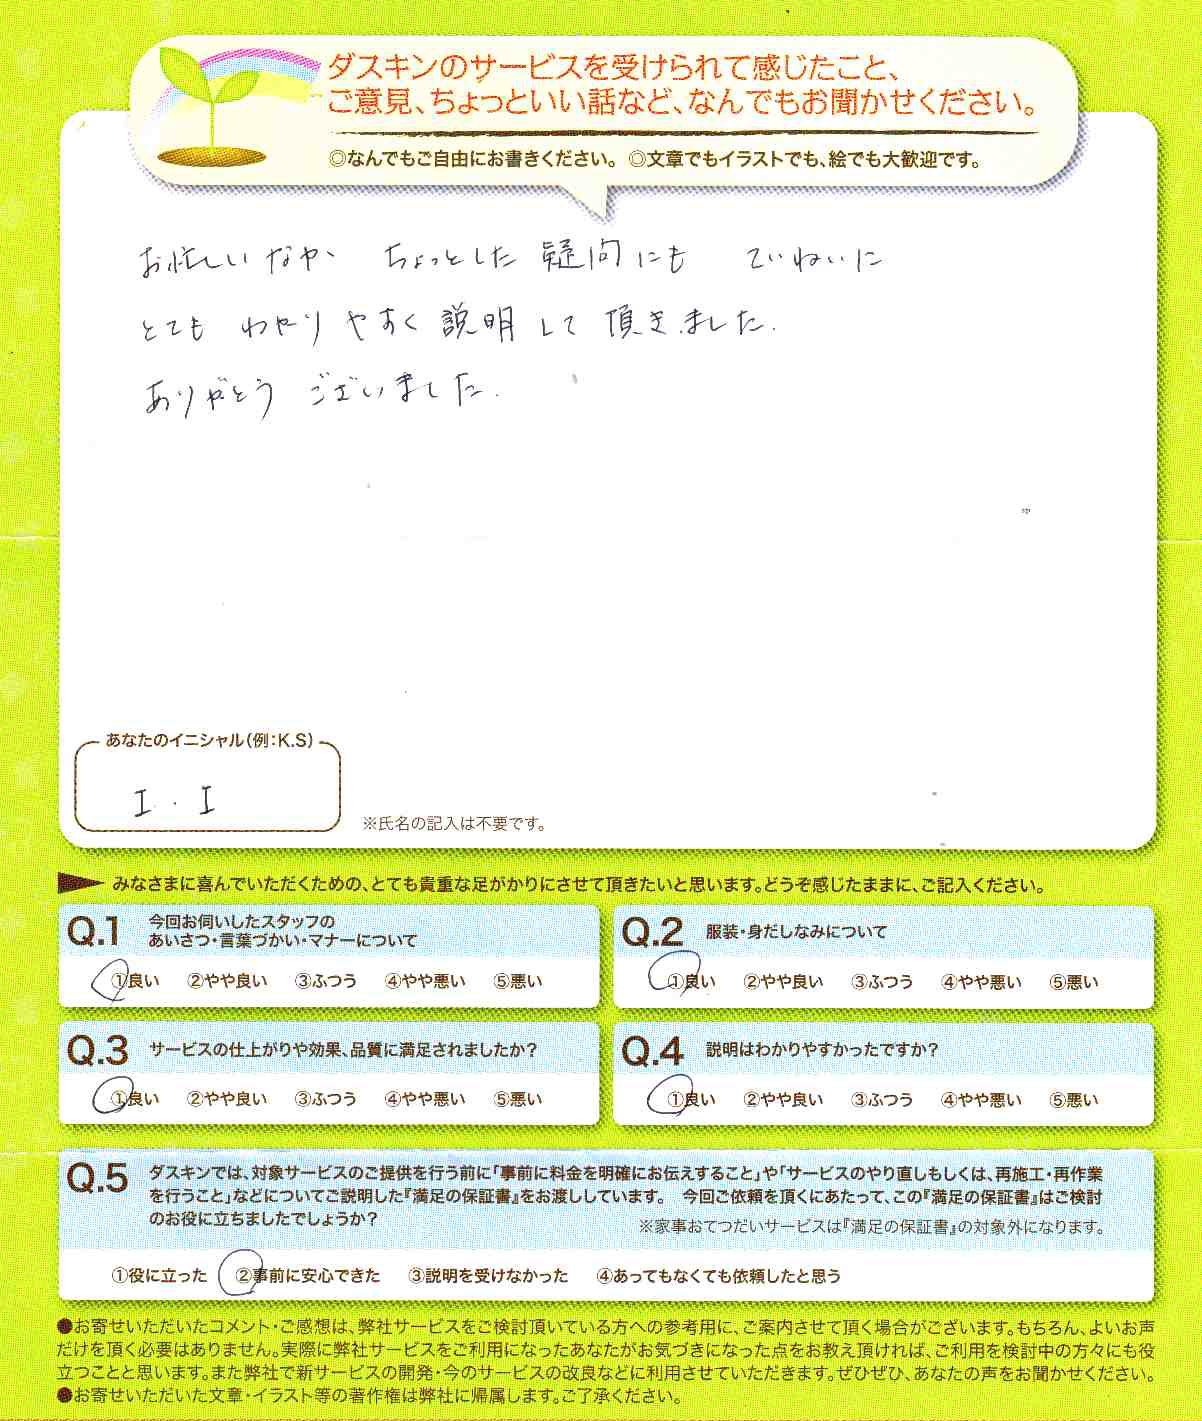 ダスキンのサービスを受けられて感じたこと、
ご意見、ちょっといい話など、なんでもお聞かせください。
◎なんでもご自由にお書きください。 ◎文章でもイラストでも、絵でも大歓迎です。
お忙しいなか ちょっとした疑問にも ていねいに
とても わかりやすく説明して頂きました.
ありがとう ございました.
あなたのイニシャル(例:K.S)
I . I
※氏名の記入は不要です。
みなさまに喜んでいただくための、とても貴重な足がかりにさせて頂きたいと思います。どうぞ感じたままに、ご記入ください。
Q.1 今回お伺いしたスタッフの
あいさつ・言葉づかい・マナーについて
①良い ②やや良い ③ふつう ④やや悪い ⑤悪い
Q.2 服装・身だしなみについて
①良い ②やや良い ③ふつう ④やや悪い ⑤悪い
Q.3 サービスの仕上がりや効果、品質に満足されましたか?
①良い ②やや良い ③ふつう ④やや悪い ⑤悪い
Q.4 説明はわかりやすかったですか?
①良い ②やや良い ③ふつう ④やや悪い ⑤悪い
Q.5 ダスキンでは、対象サービスのご提供を行う前に「事前に料金を明確にお伝えすること」や「サービスのやり直しもしくは、再施工・再作業
を行うこと」などについてご説明した『満足の保証書』をお渡ししています。 今回ご依頼を頂くにあたって、この『満足の保証書』はご検討
のお役に立ちましたでしょうか?
※家事おてつだいサービスは『満足の保証書』の対象外になります。
①役に立った ②事前に安心できた ③説明を受けなかった ④あってもなくても依頼したと思う
●お寄せいただいたコメント・ご感想は、弊社サービスをご検討頂いている方への参考用に、ご案内させて頂く場合がございます。もちろん、よいお声
だけを頂く必要はありません。実際に弊社サービスをご利用になったあなたがお気づきになった点をお教え頂ければ、ご利用を検討中の方々にも役
立つことと思います。また弊社で新サービスの開発・今のサービスの改良などに利用させていただきます。ぜひぜひ、あなたの声をお聞かせください。
●お寄せいただいた文章・イラスト等の著作権は弊社に帰属します。ご了承ください。